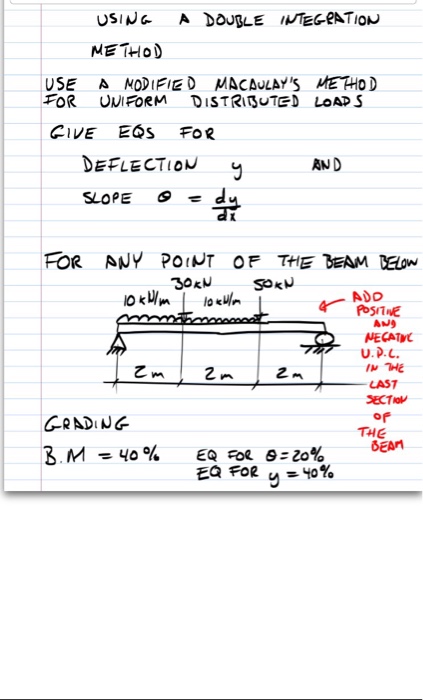 USING A DOUBLE INTEGRATION
METHOD
USE A MODIFIED MACAULAY'S METHOD
FOR UNIFORM DISTRIBUTED LOADS
GIVE EQS FOR
DEFLECTION y AND
SLOPE θ = dy/dx
FOR ANY POINT OF THE BEAM BELOW
30kN 50kN
10kN/m 10kN/m
2m 2m 2m
ADD
POSITIVE
AND
NEGATIVE
U.D.L.
IN THE
LAST
SECTION
OF
THE
BEAM
GRADING
B.M = 40% EQ FOR θ = 20%
EQ FOR y = 40%